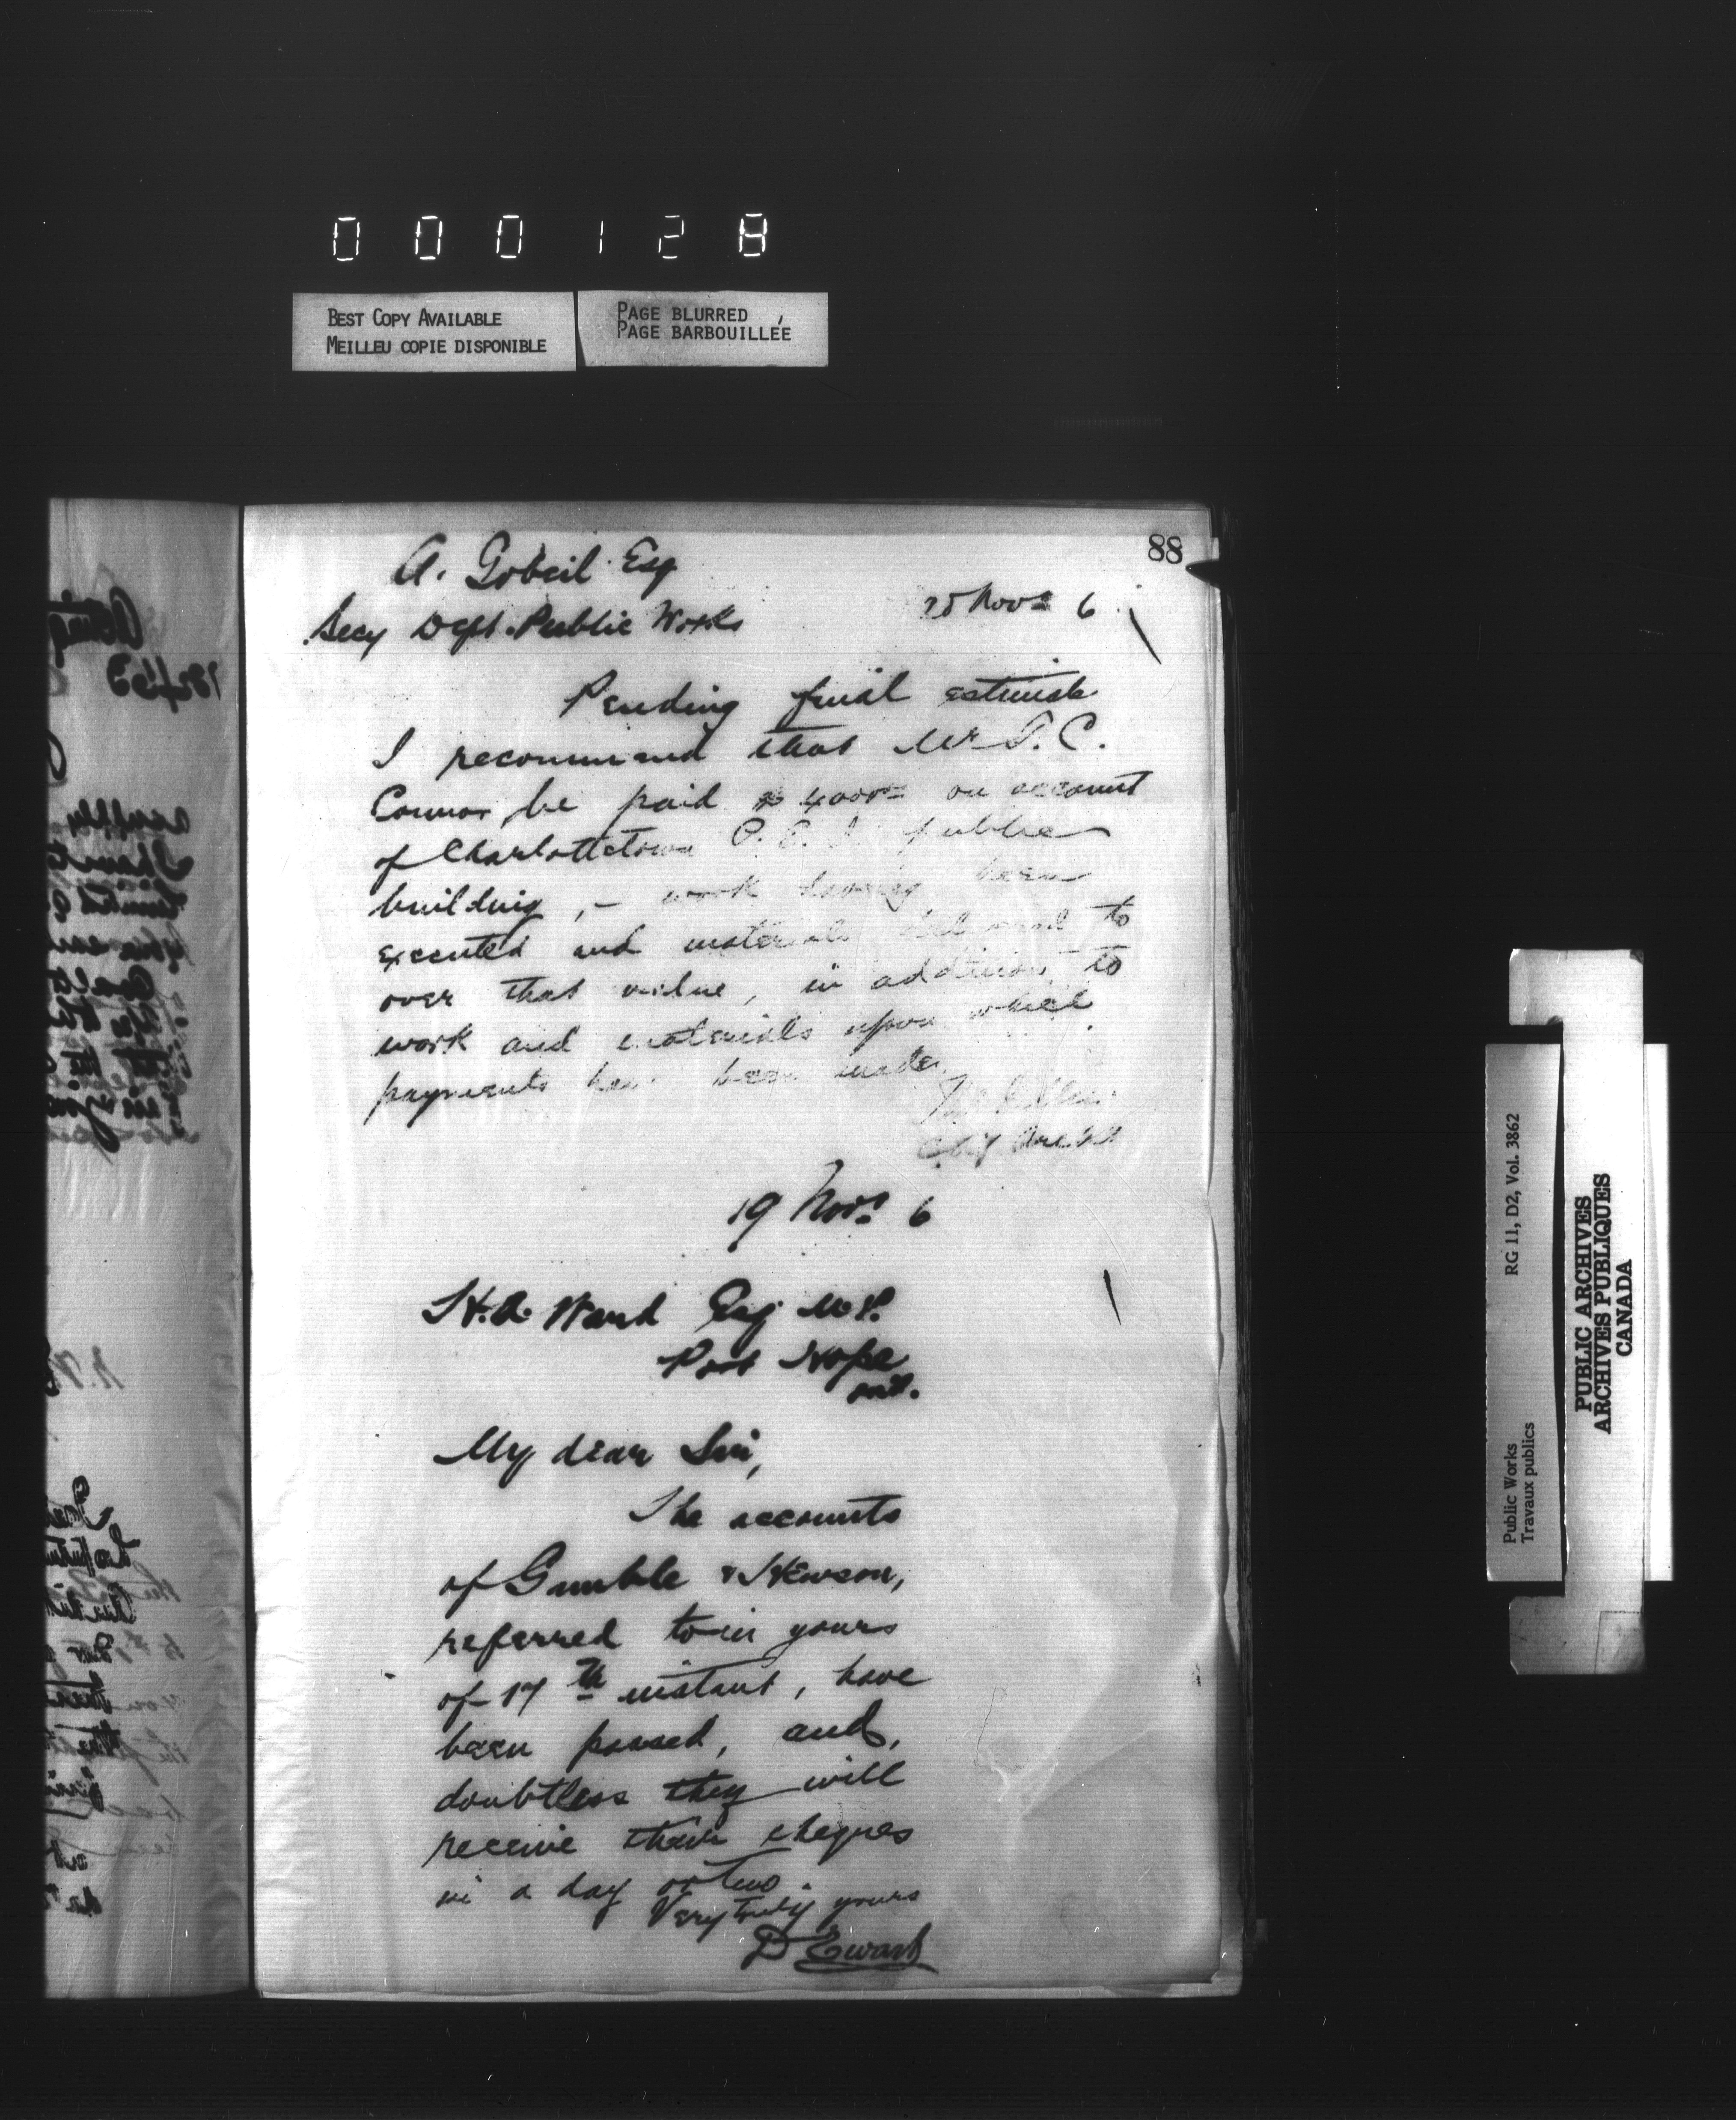 000128
BEST COPY AVAILABLE
MEILLEU COPIE DISPONIBLE
PAGE BLURRED
PAGE BARBOUILLÉE
88
A. Gobeil Esq
Secy Dept. Public Works
Novr 6
Pending final estimate
I recommend that Mr T. C.
Connor be paid $ 4000= on account
of Charlottetown P. E. I. public
building, - work having been
executed and materials delivered to
over that value, in addition to
work and materials upon which
payments have been made.
Chf Archt
19 Novr 6
H. A. Ward Esq M.P.
Port Hope
Ont.
My dear Sir,
The accounts
of Gamble & Hewson,
referred to in yours
of 17th instant, have
been passed, and,
doubtless they will
receive their cheques
in a day or two
Very truly yours
D Ewart
Public Works
Travaux publics
RG 11, D2, Vol. 3862
PUBLIC ARCHIVES
ARCHIVES PUBLIQUES
CANADA